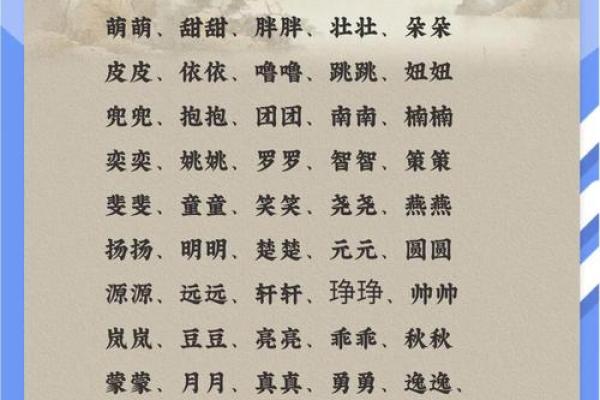 萌萌、甜甜、胖胖、壮壮、朵朵
皮皮、依依、噜噜、跳跳、妞妞
兜兜、抱抱、团团、南南、楠楠
奕奕、姚姚、罗罗、智智、策策
斐斐、童童、笑笑、尧尧、燕燕
扬扬、明明、楚楚、元元、圆圆
源源、远远、轩轩、琤琤、帅帅
岚岚、豆豆、亮亮、乖乖、秋秋
蒙蒙、月月、真真、勇勇、逸逸、